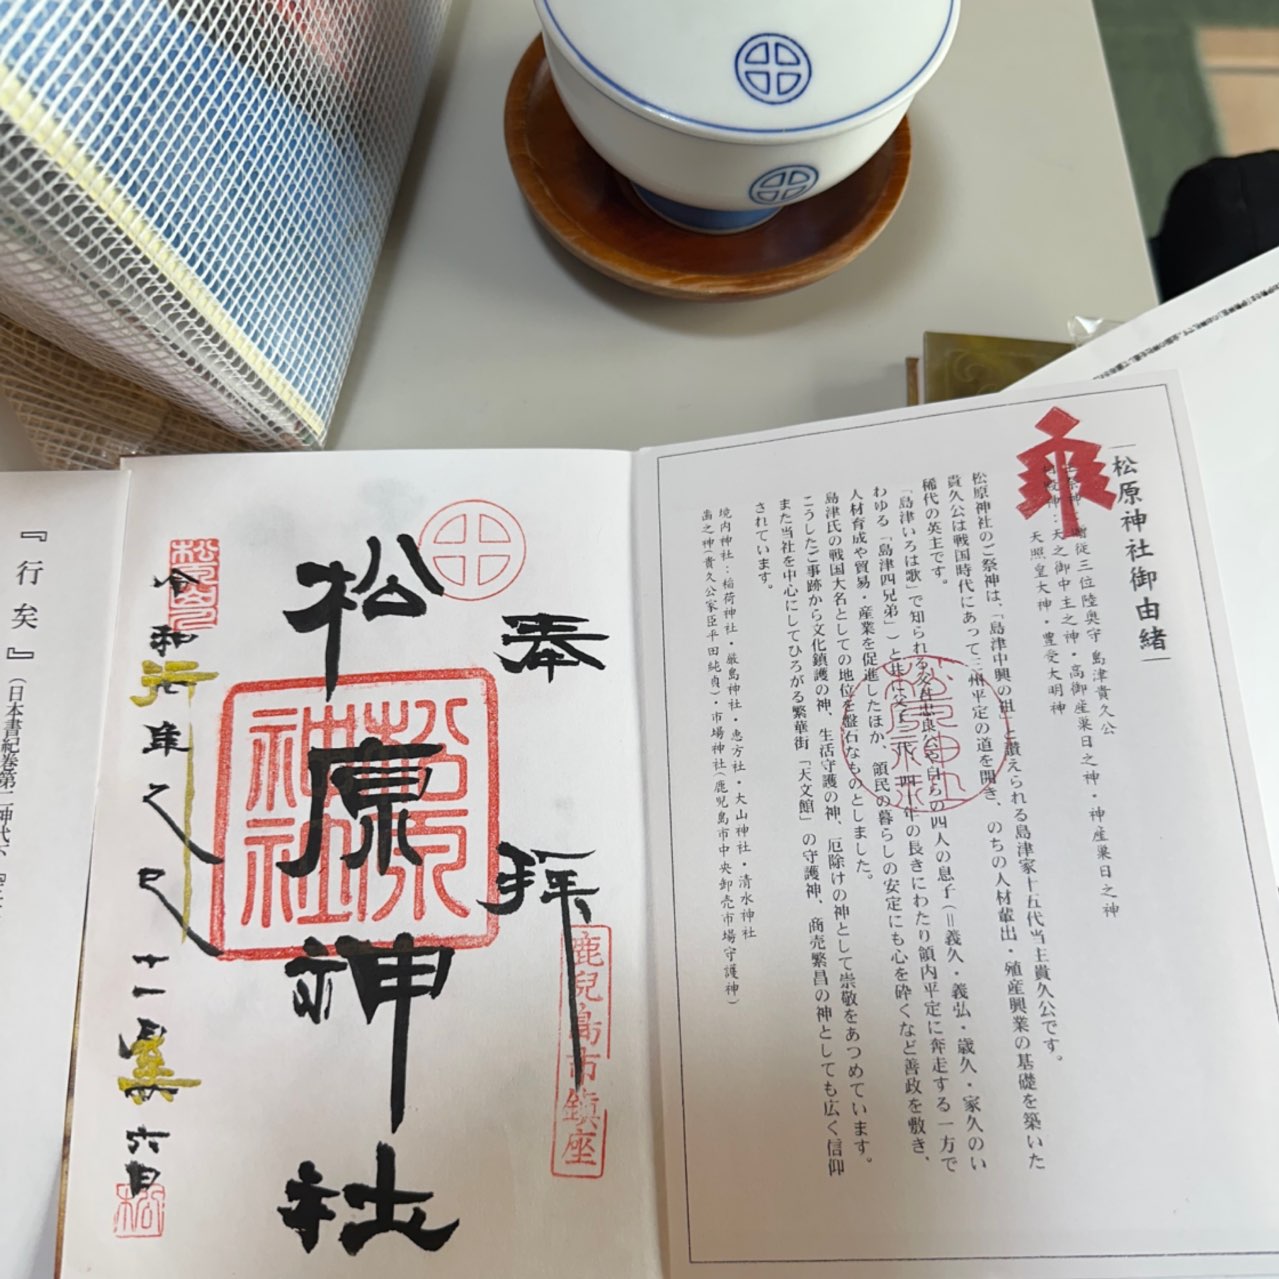 松原神社御由緒
主祭神：贈従三位陸奥守 島津貴久公
相殿神：天之御中主之神・高御産巣日之神・神産巣日之神
天照皇大神・豊受大明神
松原神社のご祭神は、「島津中興の祖」と讃えられる島津家十五代当主貴久公です。
貴久公は戦国時代にあって三州平定の道を開き、のちの人材輩出・殖産興業の基礎を築いた
稀代の英主です。
「島津いろは歌」で知られる父君忠良公や自らの四人の息子（＝義久・義弘・歳久・家久のい
わゆる「島津四兄弟」）と共に父子三代、四十年の長きにわたり領内平定に奔走する一方で
人材育成や貿易・産業を促進したほか、領民の暮らしの安定にも心を砕くなど善政を敷き、
島津氏の戦国大名としての地位を盤石なものとしました。
こうしたご事跡から文化鎮護の神、生活守護の神、厄除けの神として崇敬をあつめています。
また当社を中心にしてひろがる繁華街「天文館」の守護神、商売繁昌の神としても広く信仰
されています。
境内神社：稲荷神社・厳島神社・恵方社・大山神社・清水神社
歯之神（貴久公家臣平田純貞）・市場神社（鹿児島市中央卸売市場守護神）
奉拝
鹿兒島市鎮座
松原神社
松原神社
令和
年乙巳
十一
六日
松
『行矣』（日本書紀巻第二神代下